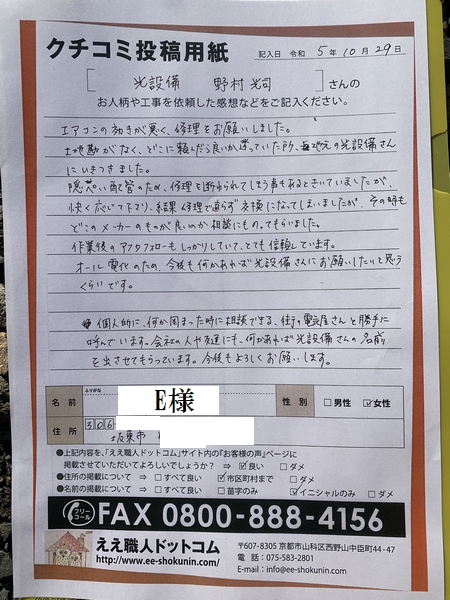 クチコミ投稿用紙
記入日 令和 5年10月29日
[ 光設備 野村光司 ] さんの
お人柄や工事を依頼した感想などをご記入ください。
エアコンの効きが悪く、修理をお願いしました。
土地勘がなく、どこに頼んだら良いか迷っていた所、地元の光設備さん
にいきつきました。
隠ぺい配管のため、修理を断わられてしまう事もあるときいていましたが、
快く応じて下さり、結果修理で直らず交換になってしまいましたが、その時も
どこのメーカーのものが良いのか相談にものってもらいました。
作業後のアフタフォローもしっかりしていて、とても信頼しています。
オール電化のため、今後も何かあれば光設備さんにお願いしたいと思う
くらいです。
個人的に、何か困まった時に相談できる、街の電気屋さんと勝手に
呼んでいます。会社の人や友達にも、何かあれば光設備さんの名前
を出させてもらっています。今後もよろしくお願いします。
ふりがな
名前 E様 性別 □男性 ☑女性
住所 306
坂東市
●上記内容を、「ええ職人ドットコム」サイト内の『お客様の声』ページに
掲載させていただいてよろしいでしょうか? ⇒ ☑良い □ダメ
●住所の掲載について ⇒ □すべて良い ☑市区町村まで □ダメ
●名前の掲載について ⇒ □すべて良い □苗字のみ ☑イニシャルのみ □ダメ
フリーコール FAX 0800-888-4156
ええ職人ドットコム
http://www.ee-shokunin.com/
〒607-8305 京都市山科区西野山中臣町44-47
電話:075-583-2801
E-mail:info@ee-shokunin.com